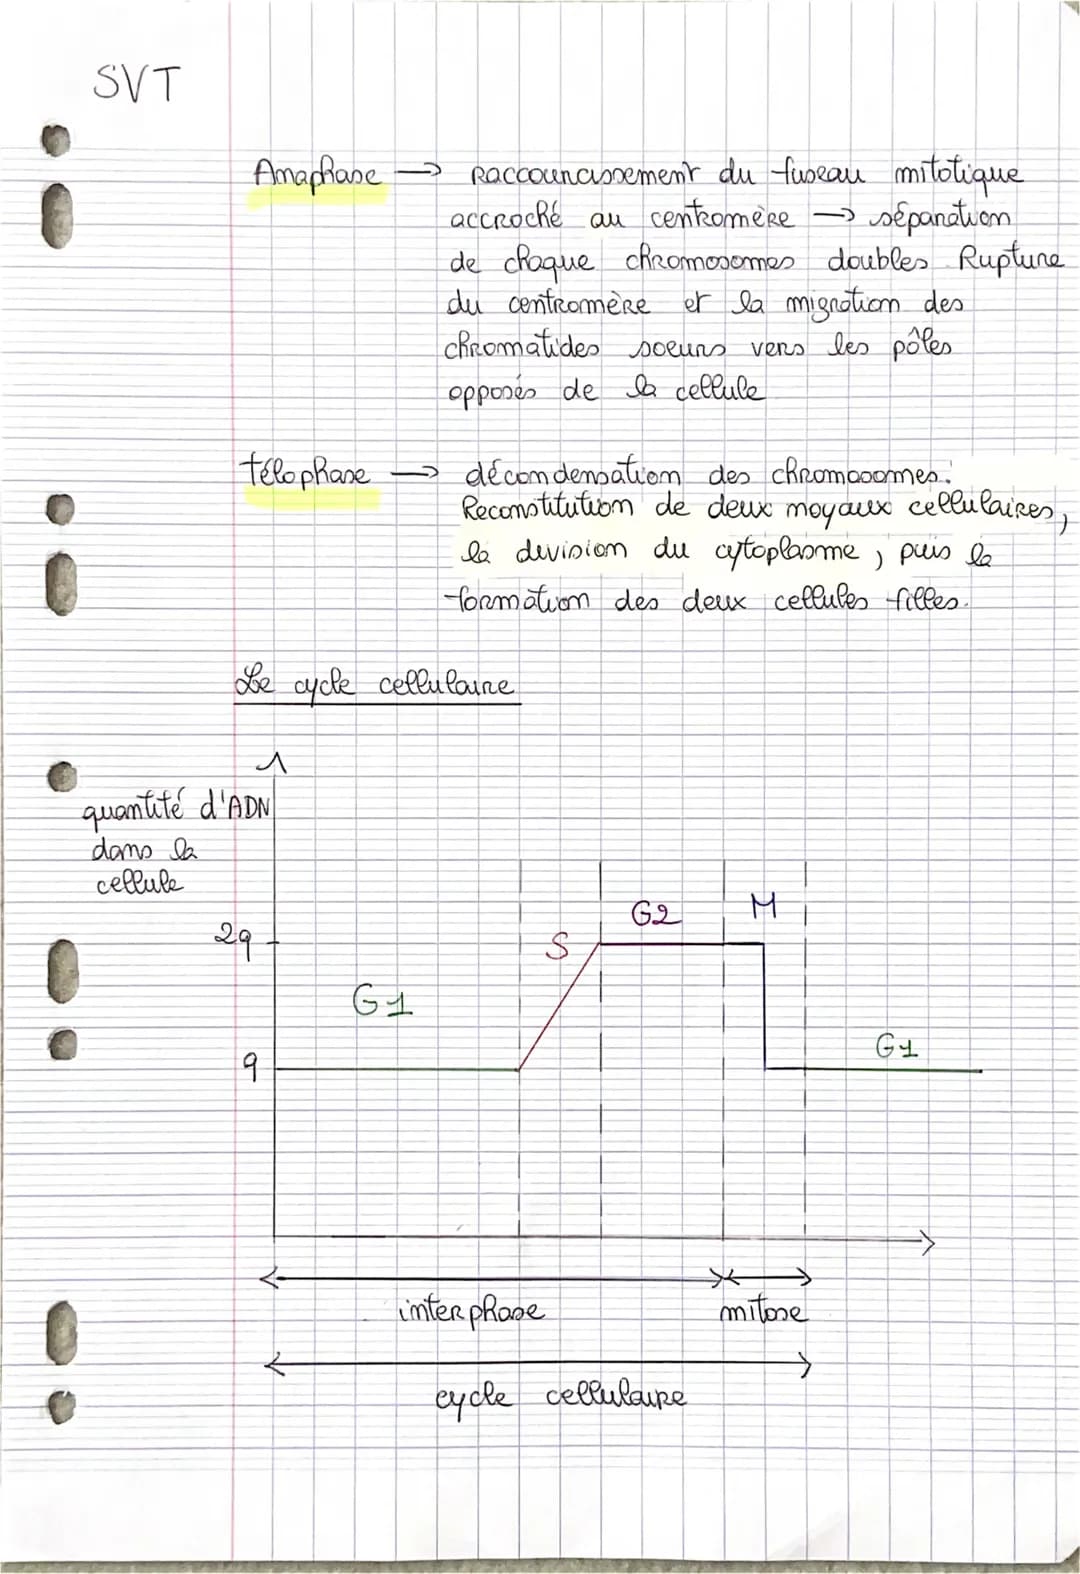 SVT
Anaphase → Raccourcissement du fuseau mitotique
accroché au centromère → séparation
de chaque chromosomes doubles Rupture
du centromère et la migration des
chromatides soeurs vers les pôles
opposés de la cellule
télophase → décondensation des chromosomes.
Reconstitution de deux noyaux cellulaires,
la division du cytoplasme, puis la
formation des deux cellules filles.
Le cycle cellulaire
quantité d'ADN
dans la
cellule
G2 M
2q S
G1
q G1
interphase mitose
cycle cellulaire